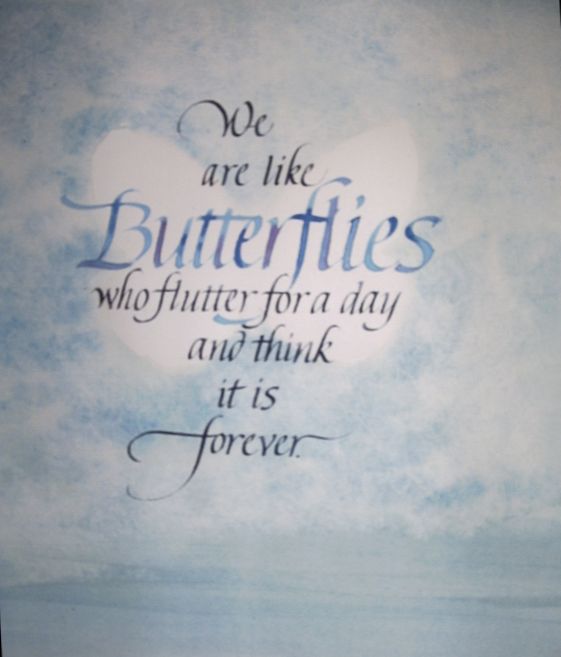 We
are like
Butterflies
who flutter for a day
and think
it is
forever.